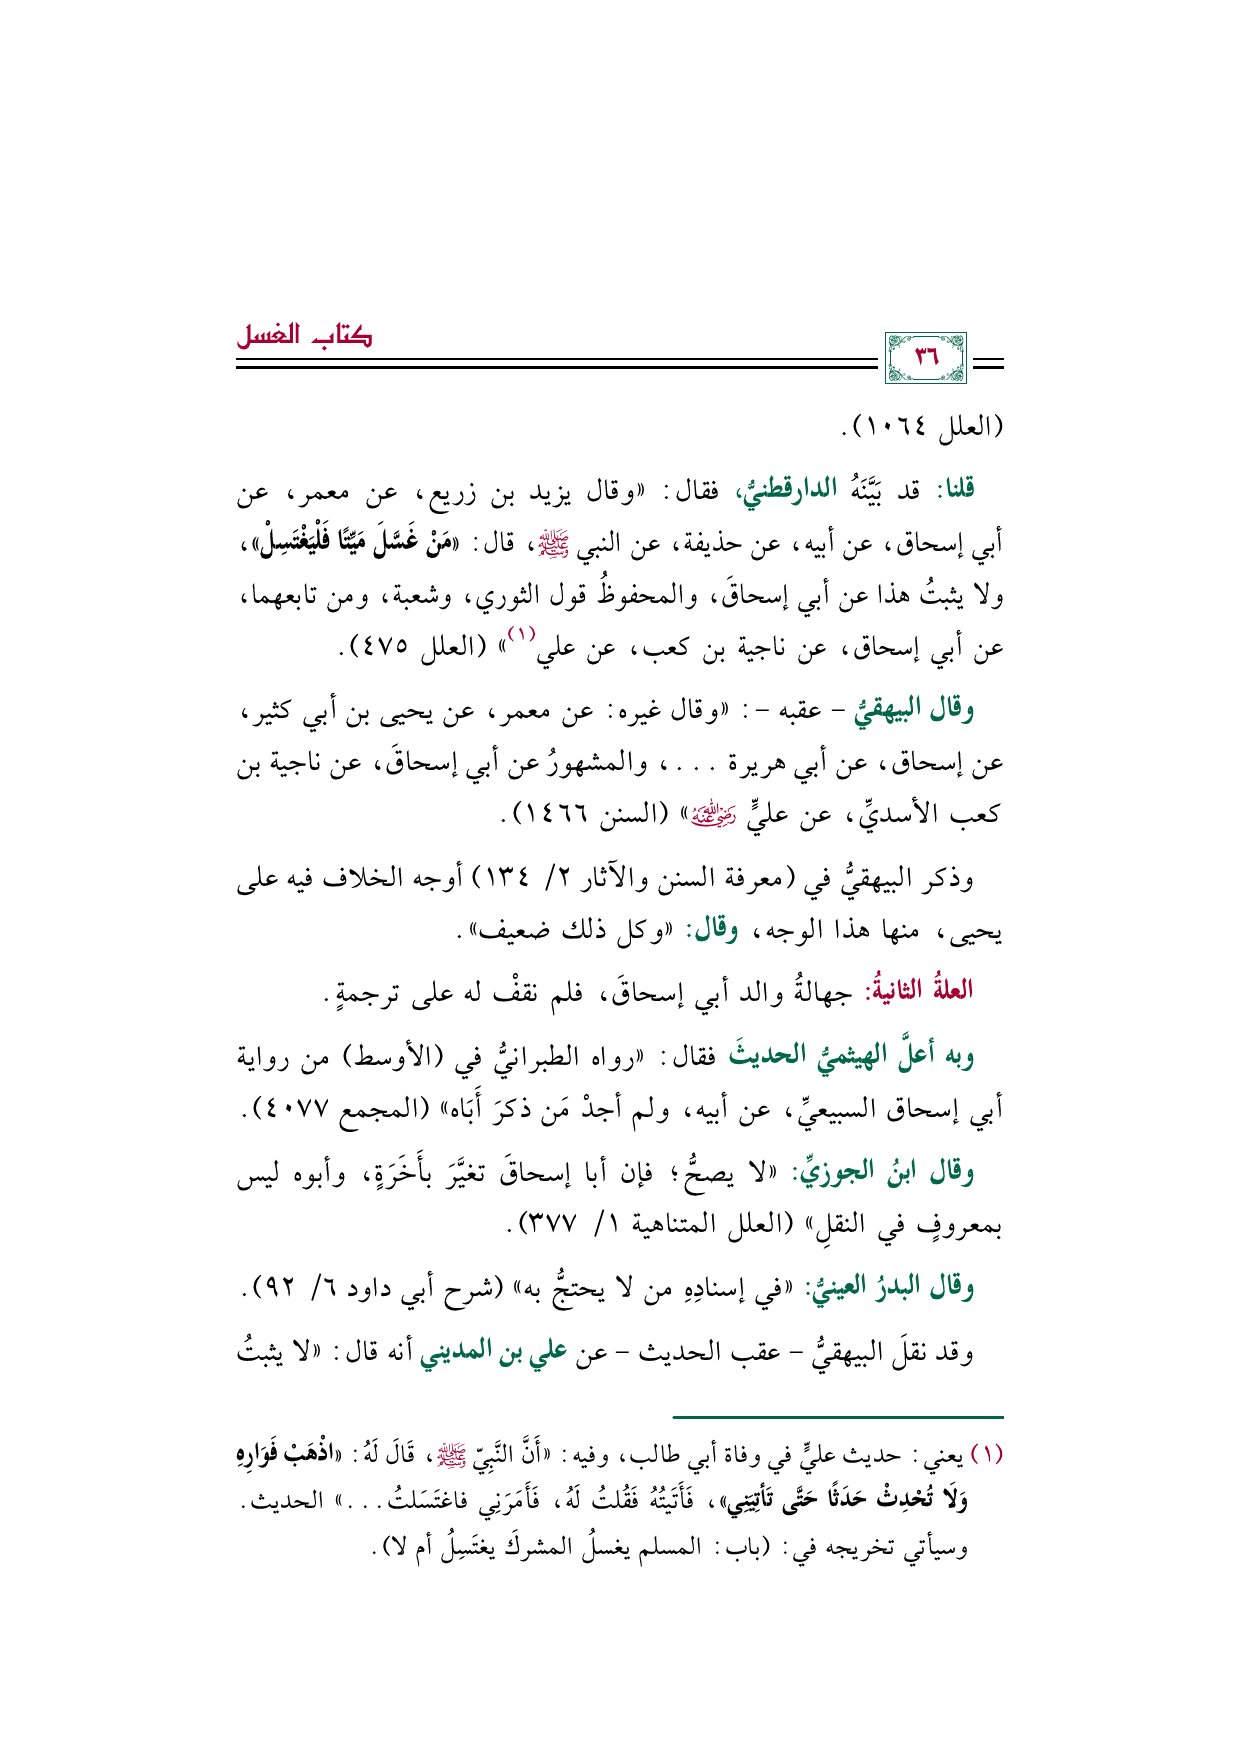 كتاب الغسل
٣٦
(العلل ١٠٦٤).
قلنا: قد بَيَّنَهُ الدارقطنيُّ، فقال: «وقال يزيد بن زريع، عن معمر، عن
أبي إسحاق، عن أبيه، عن حذيفة، عن النبي ﷺ، قال: «مَنْ غَسَّلَ مَيِّتًا فَلْيَغْتَسِلْ»،
ولا يثبتُ هذا عن أبي إسحاقَ، والمحفوظُ قول الثوري، وشعبة، ومن تابعهما،
عن أبي إسحاق، عن ناجية بن كعب، عن علي(١)» (العلل ٤٧٥).
وقال البيهقيُّ - عقبه -: «وقال غيره: عن معمر، عن يحيى بن أبي كثير،
عن إسحاق، عن أبي هريرة ...، والمشهورُ عن أبي إسحاقَ، عن ناجية بن
كعب الأسديِّ، عن عليٍّ رضي الله عنه» (السنن ١٤٦٦).
وذكر البيهقيُّ في (معرفة السنن والآثار ٢/ ١٣٤) أوجه الخلاف فيه على
يحيى، منها هذا الوجه، وقال: «وكل ذلك ضعيف».
العلةُ الثانيةُ: جهالةُ والد أبي إسحاقَ، فلم نقفْ له على ترجمةٍ.
وبه أعلَّ الهيثميُّ الحديثَ فقال: «رواه الطبرانيُّ في (الأوسط) من رواية
أبي إسحاق السبيعيِّ، عن أبيه، ولم أجدْ مَن ذكرَ أَبَاه» (المجمع ٤٠٧٧).
وقال ابنُ الجوزيِّ: «لا يصحُّ؛ فإن أبا إسحاقَ تغيَّرَ بأَخَرَةٍ، وأبوه ليس
بمعروفٍ في النقلِ» (العلل المتناهية ١/ ٣٧٧).
وقال البدرُ العينيُّ: «في إسنادِهِ من لا يحتجُّ به» (شرح أبي داود ٦/ ٩٢).
وقد نقلَ البيهقيُّ - عقب الحديث - عن علي بن المديني أنه قال: «لا يثبتُ
(١) يعني: حديث عليٍّ في وفاة أبي طالب، وفيه: «أَنَّ النَّبِيّ ﷺ، قَالَ لَهُ: «اذْهَبْ فَوَارِهِ
وَلَا تُحْدِثْ حَدَثًا حَتَّى تَأتِيَنِي»، فَأَتَيتُهُ فَقُلتُ لَهُ، فَأَمَرَنِي فاغتَسَلتُ...» الحديث.
وسيأتي تخريجه في: (باب: المسلم يغسلُ المشركَ يغتَسِلُ أم لا).